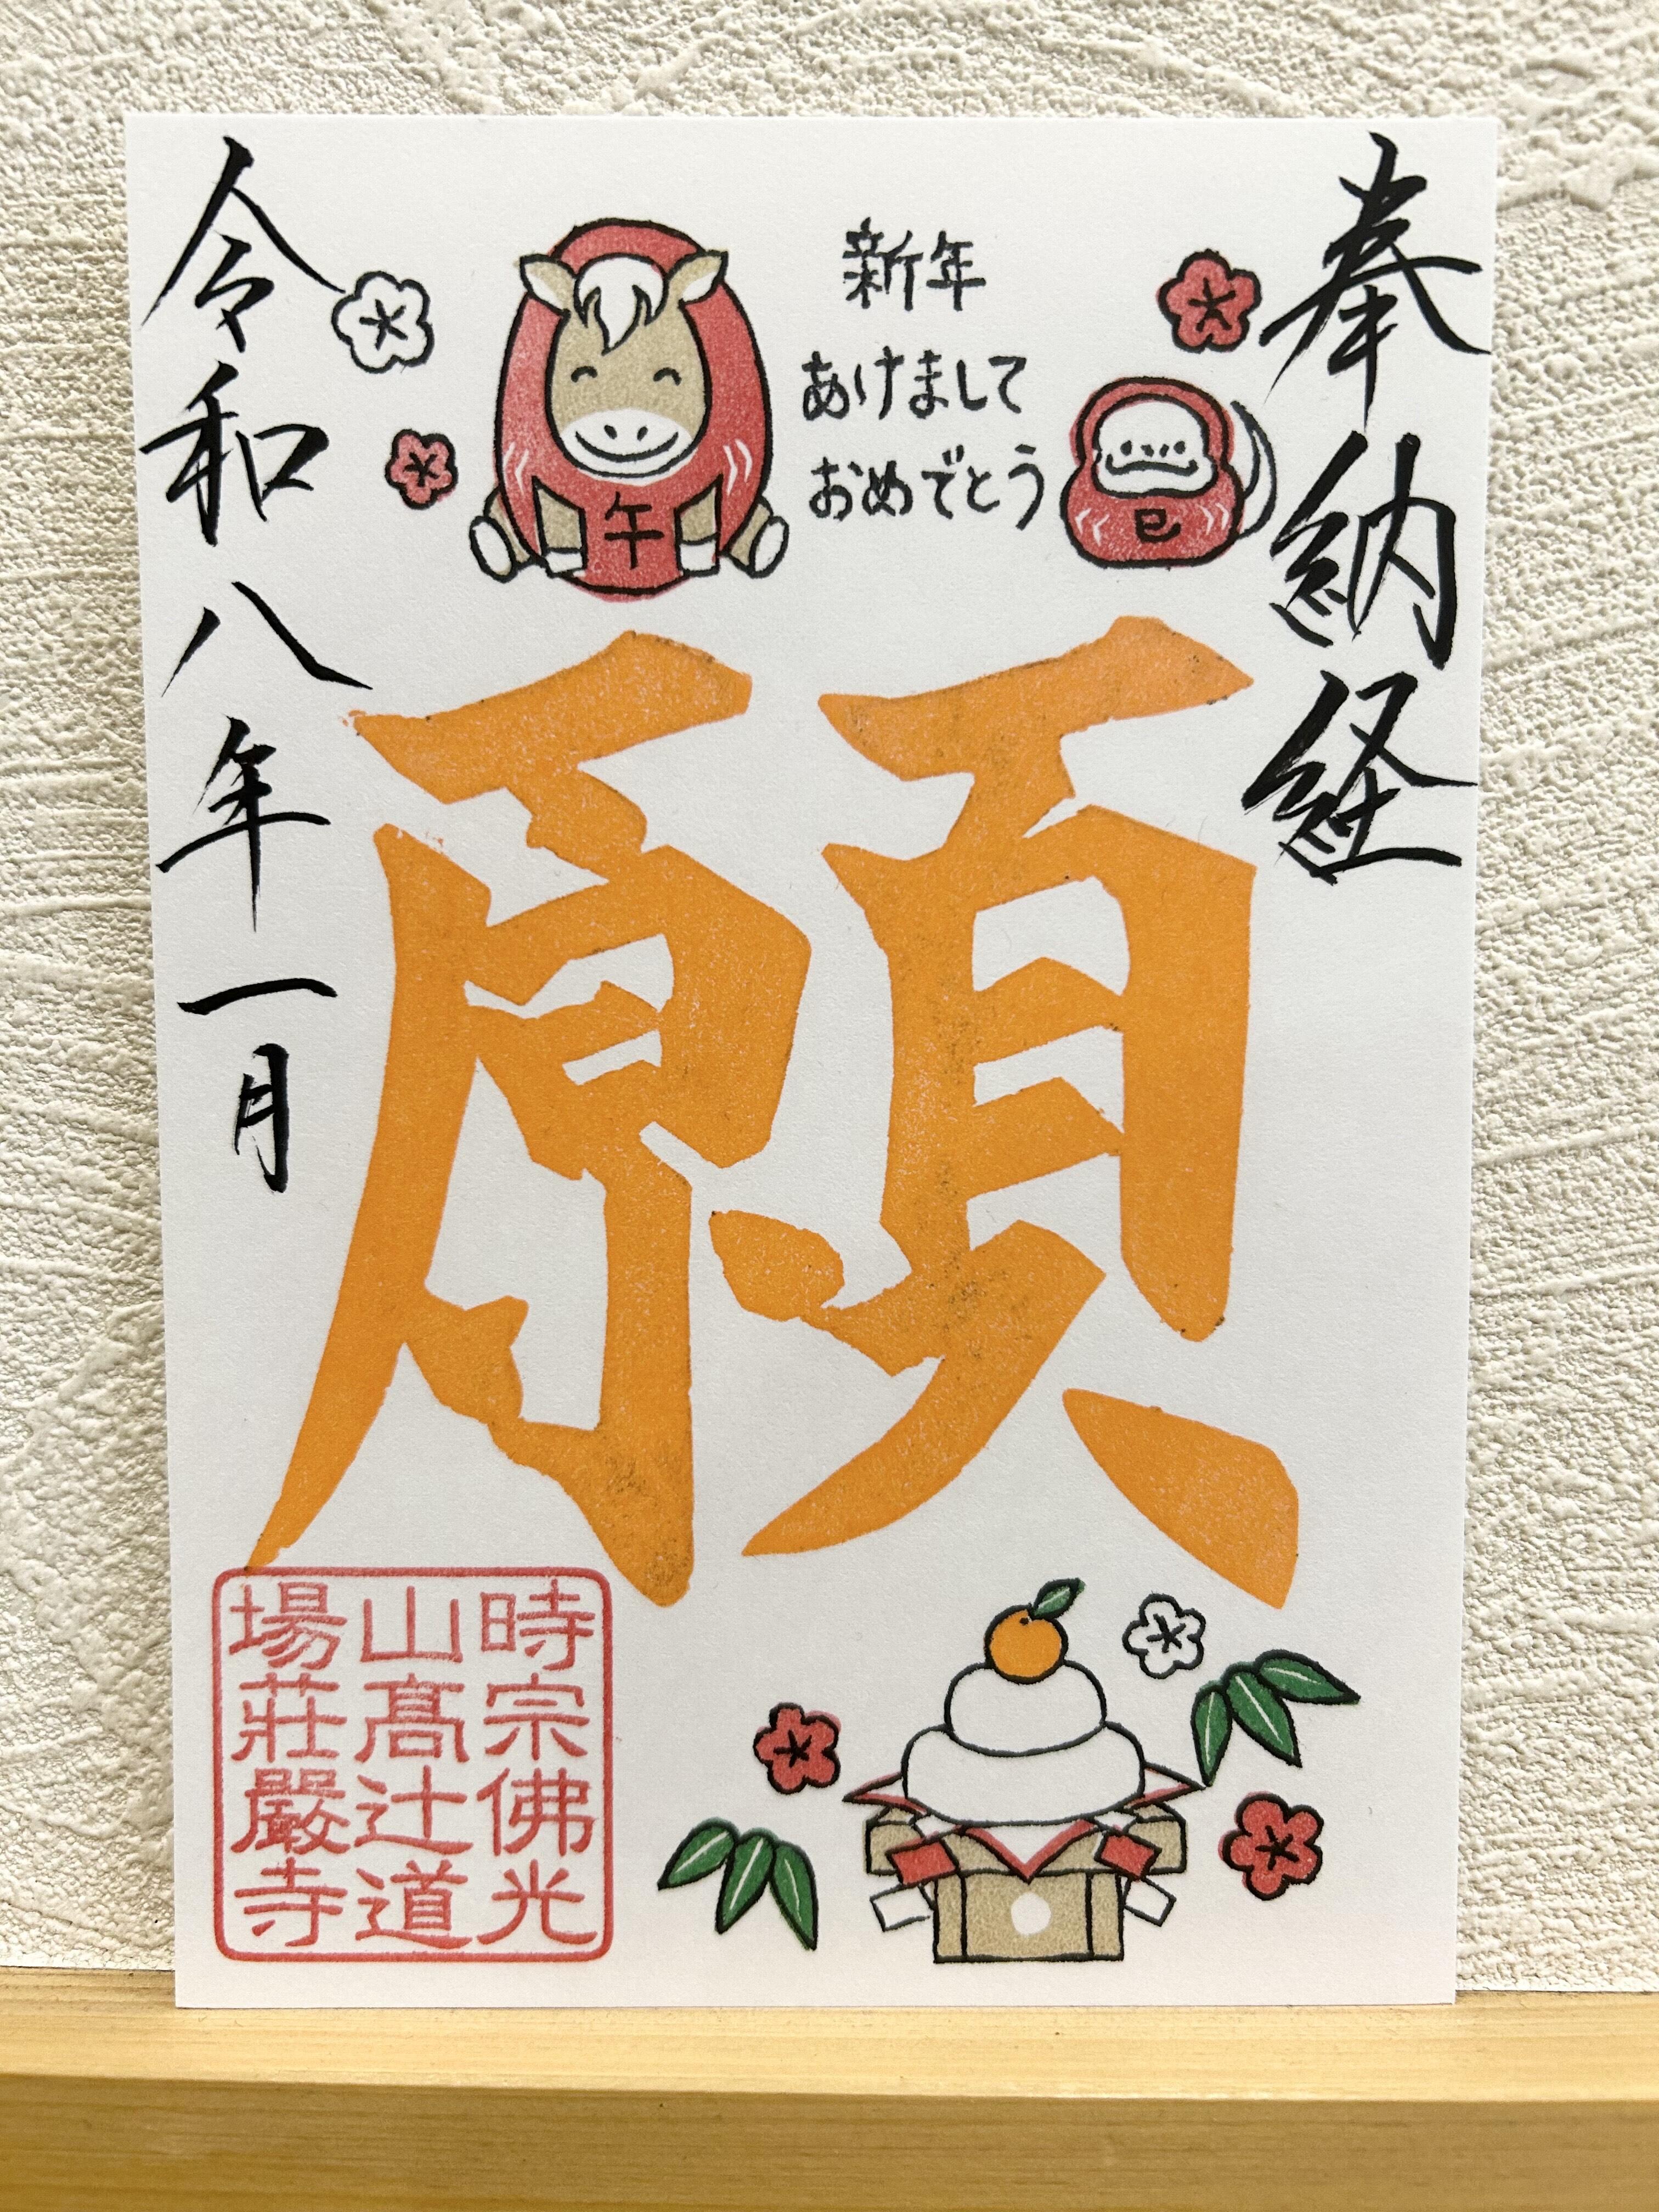 奉納経
新年
あけまして
おめでとう
巳
午
願
令和八年一月
時宗佛光
山髙辻道
場莊嚴寺